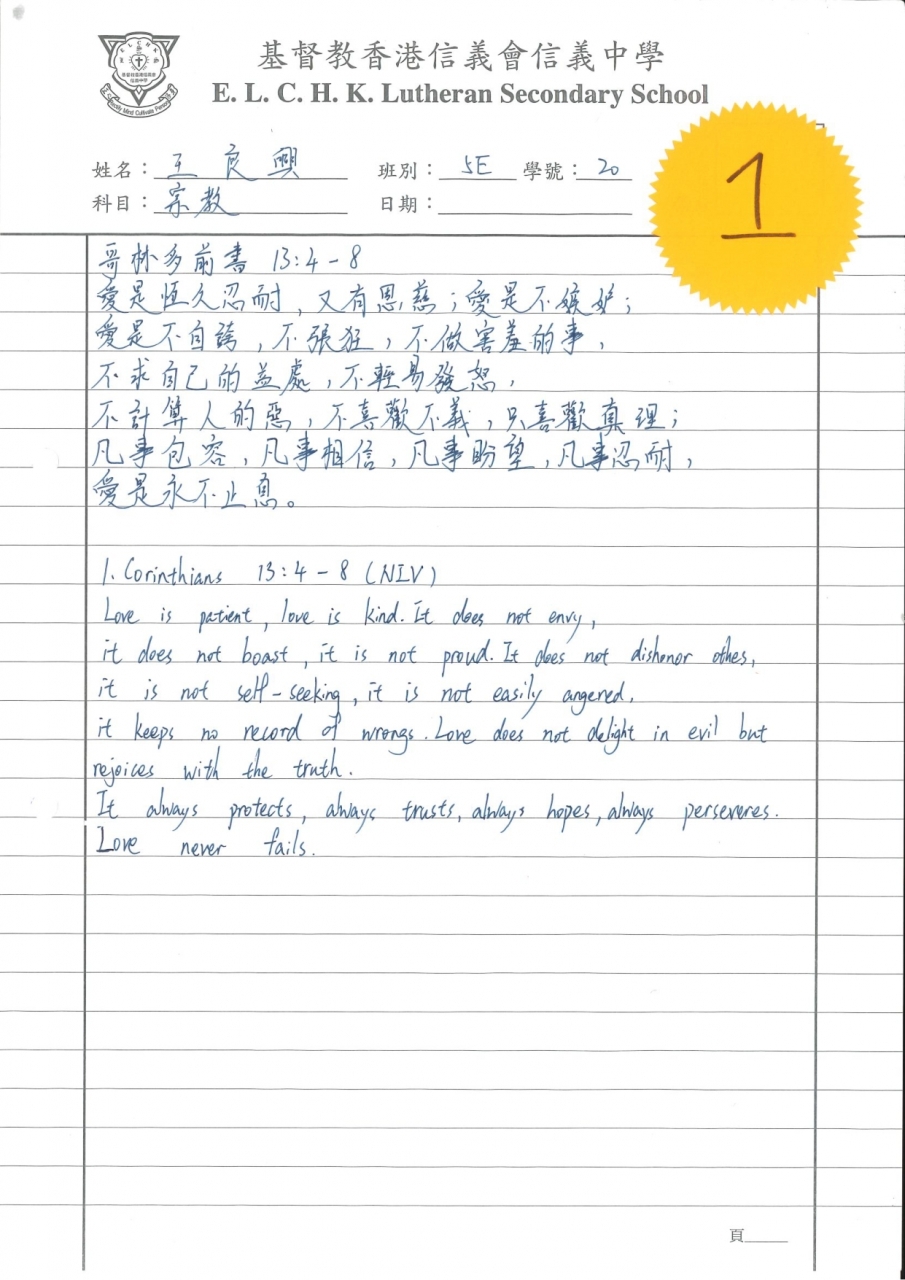 基督教香港信義會信義中學
E. L. C. H. K. Lutheran Secondary School
姓名：王良興 班別：5E 學號：20
科目：宗教 日期：
1
哥林多前書 13:4-8
愛是恆久忍耐，又有恩慈；愛是不嫉妒；
愛是不自誇，不張狂，不做害羞的事，
不求自己的益處，不輕易發怒，
不計算人的惡，不喜歡不義，只喜歡真理；
凡事包容，凡事相信，凡事盼望，凡事忍耐，
愛是永不止息。
1. Corinthians 13:4-8 (NIV)
Love is patient, love is kind. It does not envy,
it does not boast, it is not proud. It does not dishonor othes,
it is not self-seeking, it is not easily angered,
it keeps no record of wrongs. Love does not delight in evil but
rejoices with the truth.
It always protects, always trusts, always hopes, always perseveres.
Love never fails.
頁